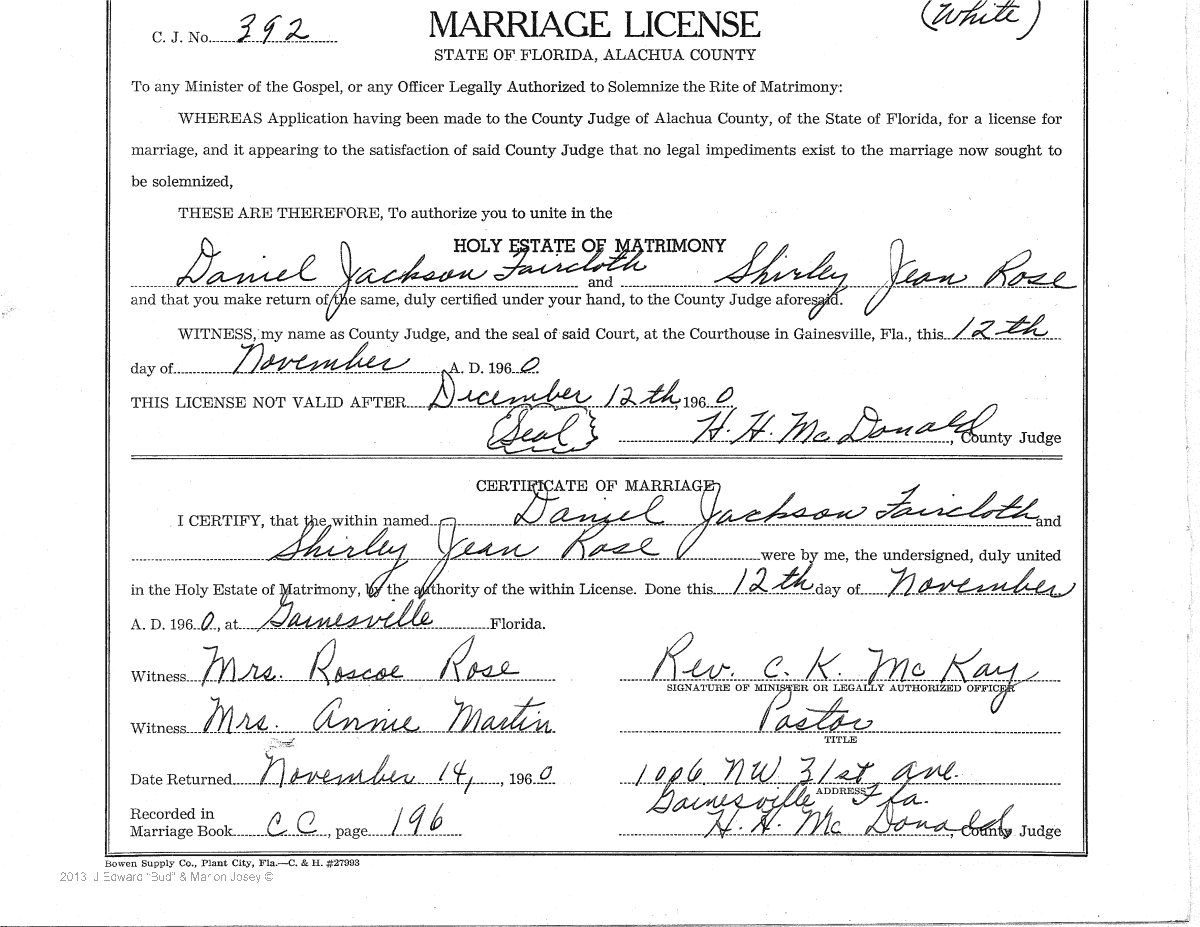 (White)
C. J. No. 392
MARRIAGE LICENSE
STATE OF FLORIDA, ALACHUA COUNTY
To any Minister of the Gospel, or any Officer Legally Authorized to Solemnize the Rite of Matrimony:
WHEREAS Application having been made to the County Judge of Alachua County, of the State of Florida, for a license for
marriage, and it appearing to the satisfaction of said County Judge that no legal impediments exist to the marriage now sought to
be solemnized,
THESE ARE THEREFORE, To authorize you to unite in the
HOLY ESTATE OF MATRIMONY
Daniel Jackson Faircloth and Shirley Jean Rose
and that you make return of the same, duly certified under your hand, to the County Judge aforesaid.
WITNESS, my name as County Judge, and the seal of said Court, at the Courthouse in Gainesville, Fla., this 12th
day of November A. D. 1960
THIS LICENSE NOT VALID AFTER December 12th, 1960
(Seal) H. H. McDonald, County Judge
CERTIFICATE OF MARRIAGE
I CERTIFY, that the within named Daniel Jackson Faircloth and
Shirley Jean Rose were by me, the undersigned, duly united
in the Holy Estate of Matrimony, by the authority of the within License. Done this 12th day of November
A. D. 1960, at Gainesville Florida.
Witness Mrs. Roscoe Rose Rev. C. K. McKay
SIGNATURE OF MINISTER OR LEGALLY AUTHORIZED OFFICER
Witness Mrs. Annie Martin Pastor
TITLE
Date Returned November 14, 1960 1006 NW 31st Ave.
ADDRESS
Gainesville, Fla.
Recorded in
Marriage Book CC, page 196 H. H. McDonald, County Judge
Bowen Supply Co., Plant City, Fla.—C. & H. #27993
2013 J Edward "Bud" & Marion Josey ©